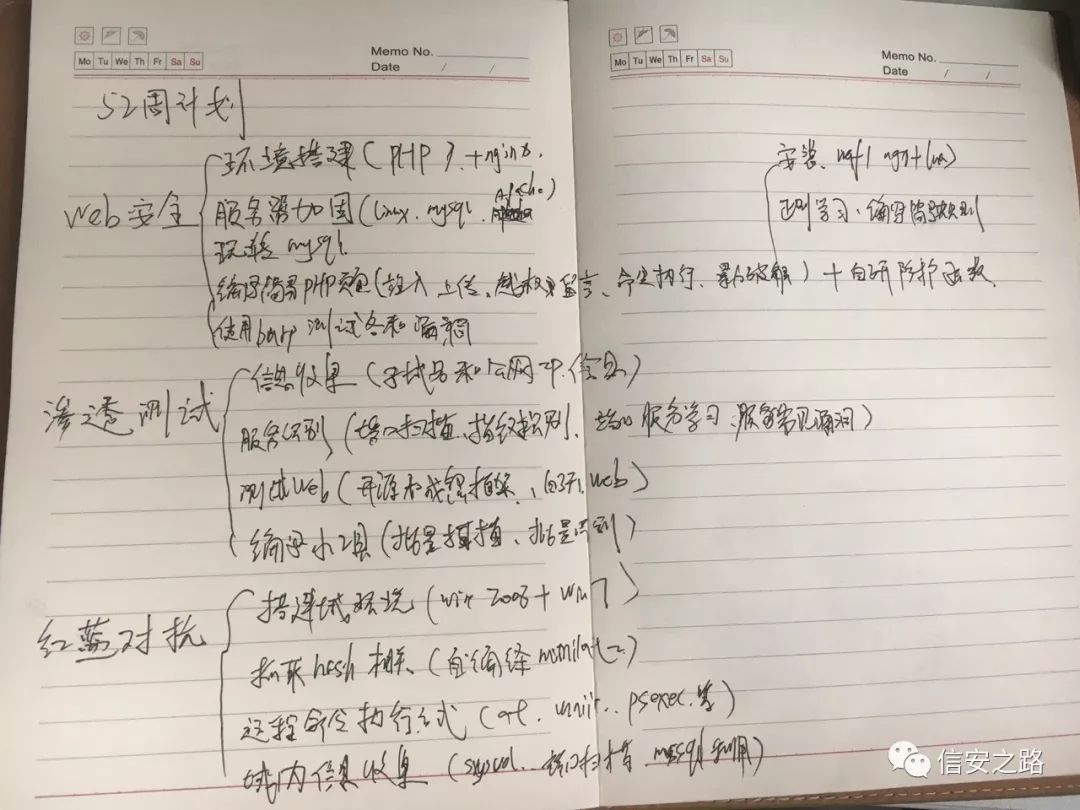 Mo Tu We Th Fr Sa Su
Memo No.
Date / /
52周计划
Web安全
环境搭建(PHP)+nginx.
服务器加固(linux.mysql.Apache)
玩转mysql.
编写简易PHP页面(注入、上传、越权、留言、命令执行、暴力破解)+自研防护函数.
使用burp测试各种漏洞
渗透测试
信息收集(子域名和公网IP.信息)
服务识别(端口扫描、指纹识别、端口服务学习、服务常见漏洞)
测试Web(开源和成熟框架、自研web)
编写小工具(批量扫描、批量识别)
红蓝对抗
搭建域环境(win 2008+win7)
抓取hash相关.(自编译mimikatz)
远程命令执行方式(at.wmi..psexec.等)
域内信息收集(sysvol..端口扫描.mssql利用)
Mo Tu We Th Fr Sa Su
Memo No.
Date / /
安装、waf(ngx+lua)
正则学习、编写简易规则
信安之路